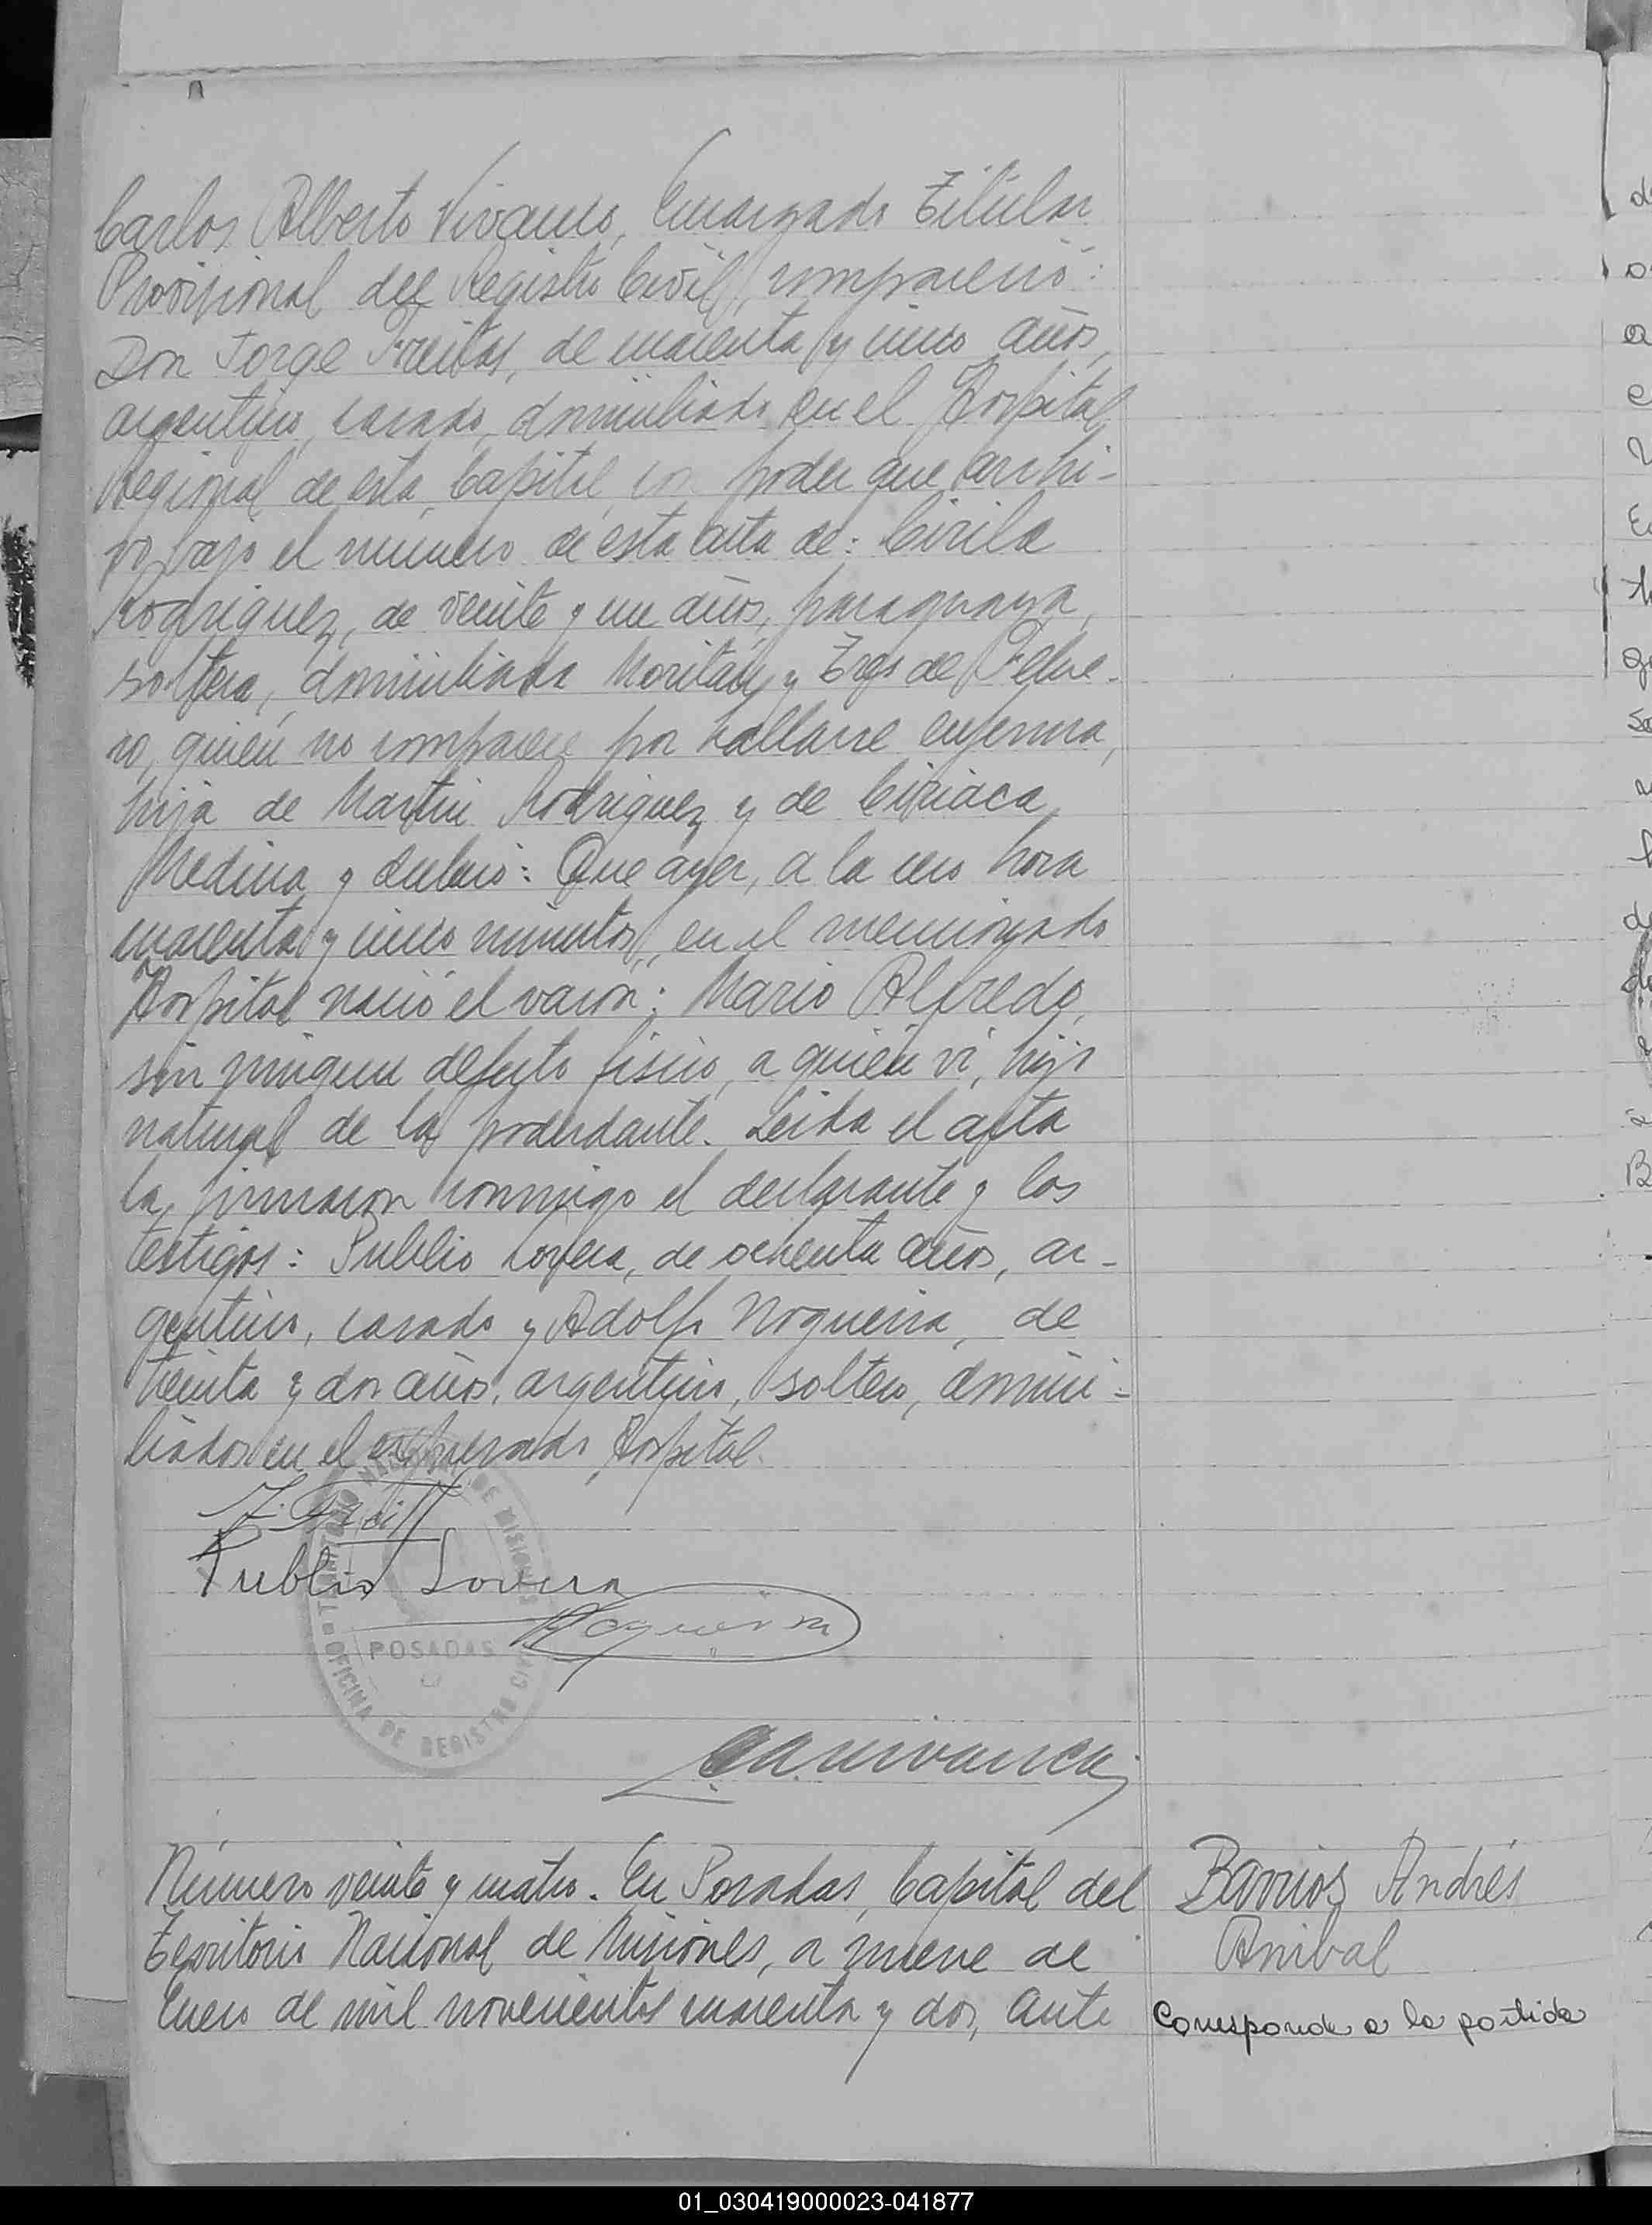 Carlos Alberto Vivanco, Encargado Titular
Provisional del Registro Civil, compareció:
Don Jorge Freitas, de cuarenta y cinco años,
argentino, casado, domiciliado en el Hospital
Regional de esta Capital, con poder que archi-
vo bajo el número de esta acta de: Cirila
Rodriguez, de veinte y un años, paraguaya,
soltera, domiciliada Moritán y Tres de Febre-
ro, quién no comparece por hallarse enferma,
hija de Martin Rodriguez y de Ciriaca
Medina y declaró: Que ayer, a la cero hora
cuarenta y cinco minutos, en el mencionado
Hospital nació el varón: Mario Alfredo,
sin ningun defecto fisico, a quién vi, hijo
natural de la poderdante. Leida el acta
la firmaron conmigo el declarante y los
testigos: Publio Lovera, de ochenta años, ar-
gentino, casado y Adolfo Nogueira, de
treinta y dos años, argentino, soltero, domici-
liados en el expresado Hospital.
Publio Lovera
Nogueira
POSADAS
OFICINA DE REGISTRO CIVIL
DE MISIONES
CAVivanco
Número veinte y cuatro. En Posadas, Capital del
Territorio Nacional de Misiones, a nueve de
Enero de mil novecientos cuarenta y dos, ante
Barrios Andrés
Anibal
Corresponde a la partida
01_030419000023-041877